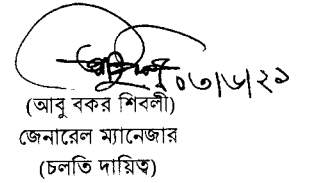 ০৩/৬/২১
(আবু বকর শিবলী)
জেনারেল ম্যানেজার
(চলতি দায়িত্ব)